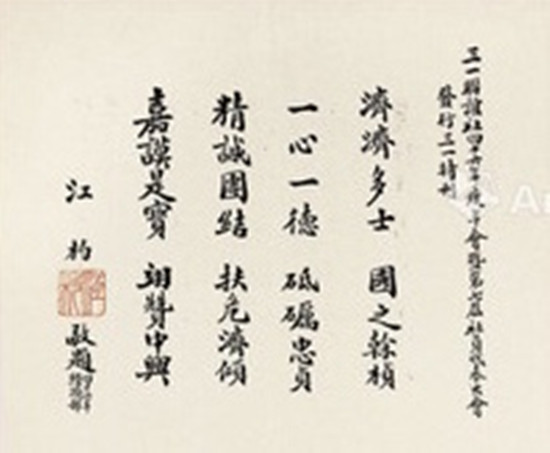 三一聯誼社四十年會暨第七屆社員代表大會
發行三一特刊
濟濟多士 國之幹楨
一心一德 砥礪忠貞
精誠團結 扶危濟傾
嘉謨是寶 翊贊中興
江杓 敬題